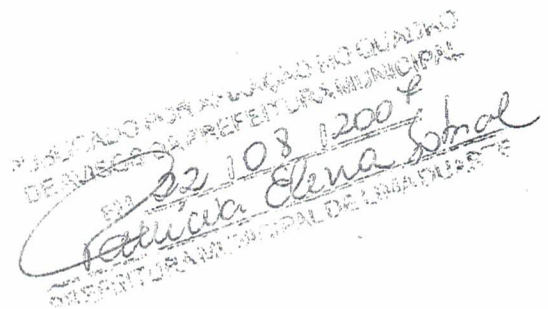 PUBLICADO POR AFIXAÇÃO NO QUADRO
DE AVISOS DA PREFEITURA MUNICIPAL
EM 22 / 08 / 200
Patrícia Elena
PREFEITURA MUNICIPAL DE LIMA DUARTE